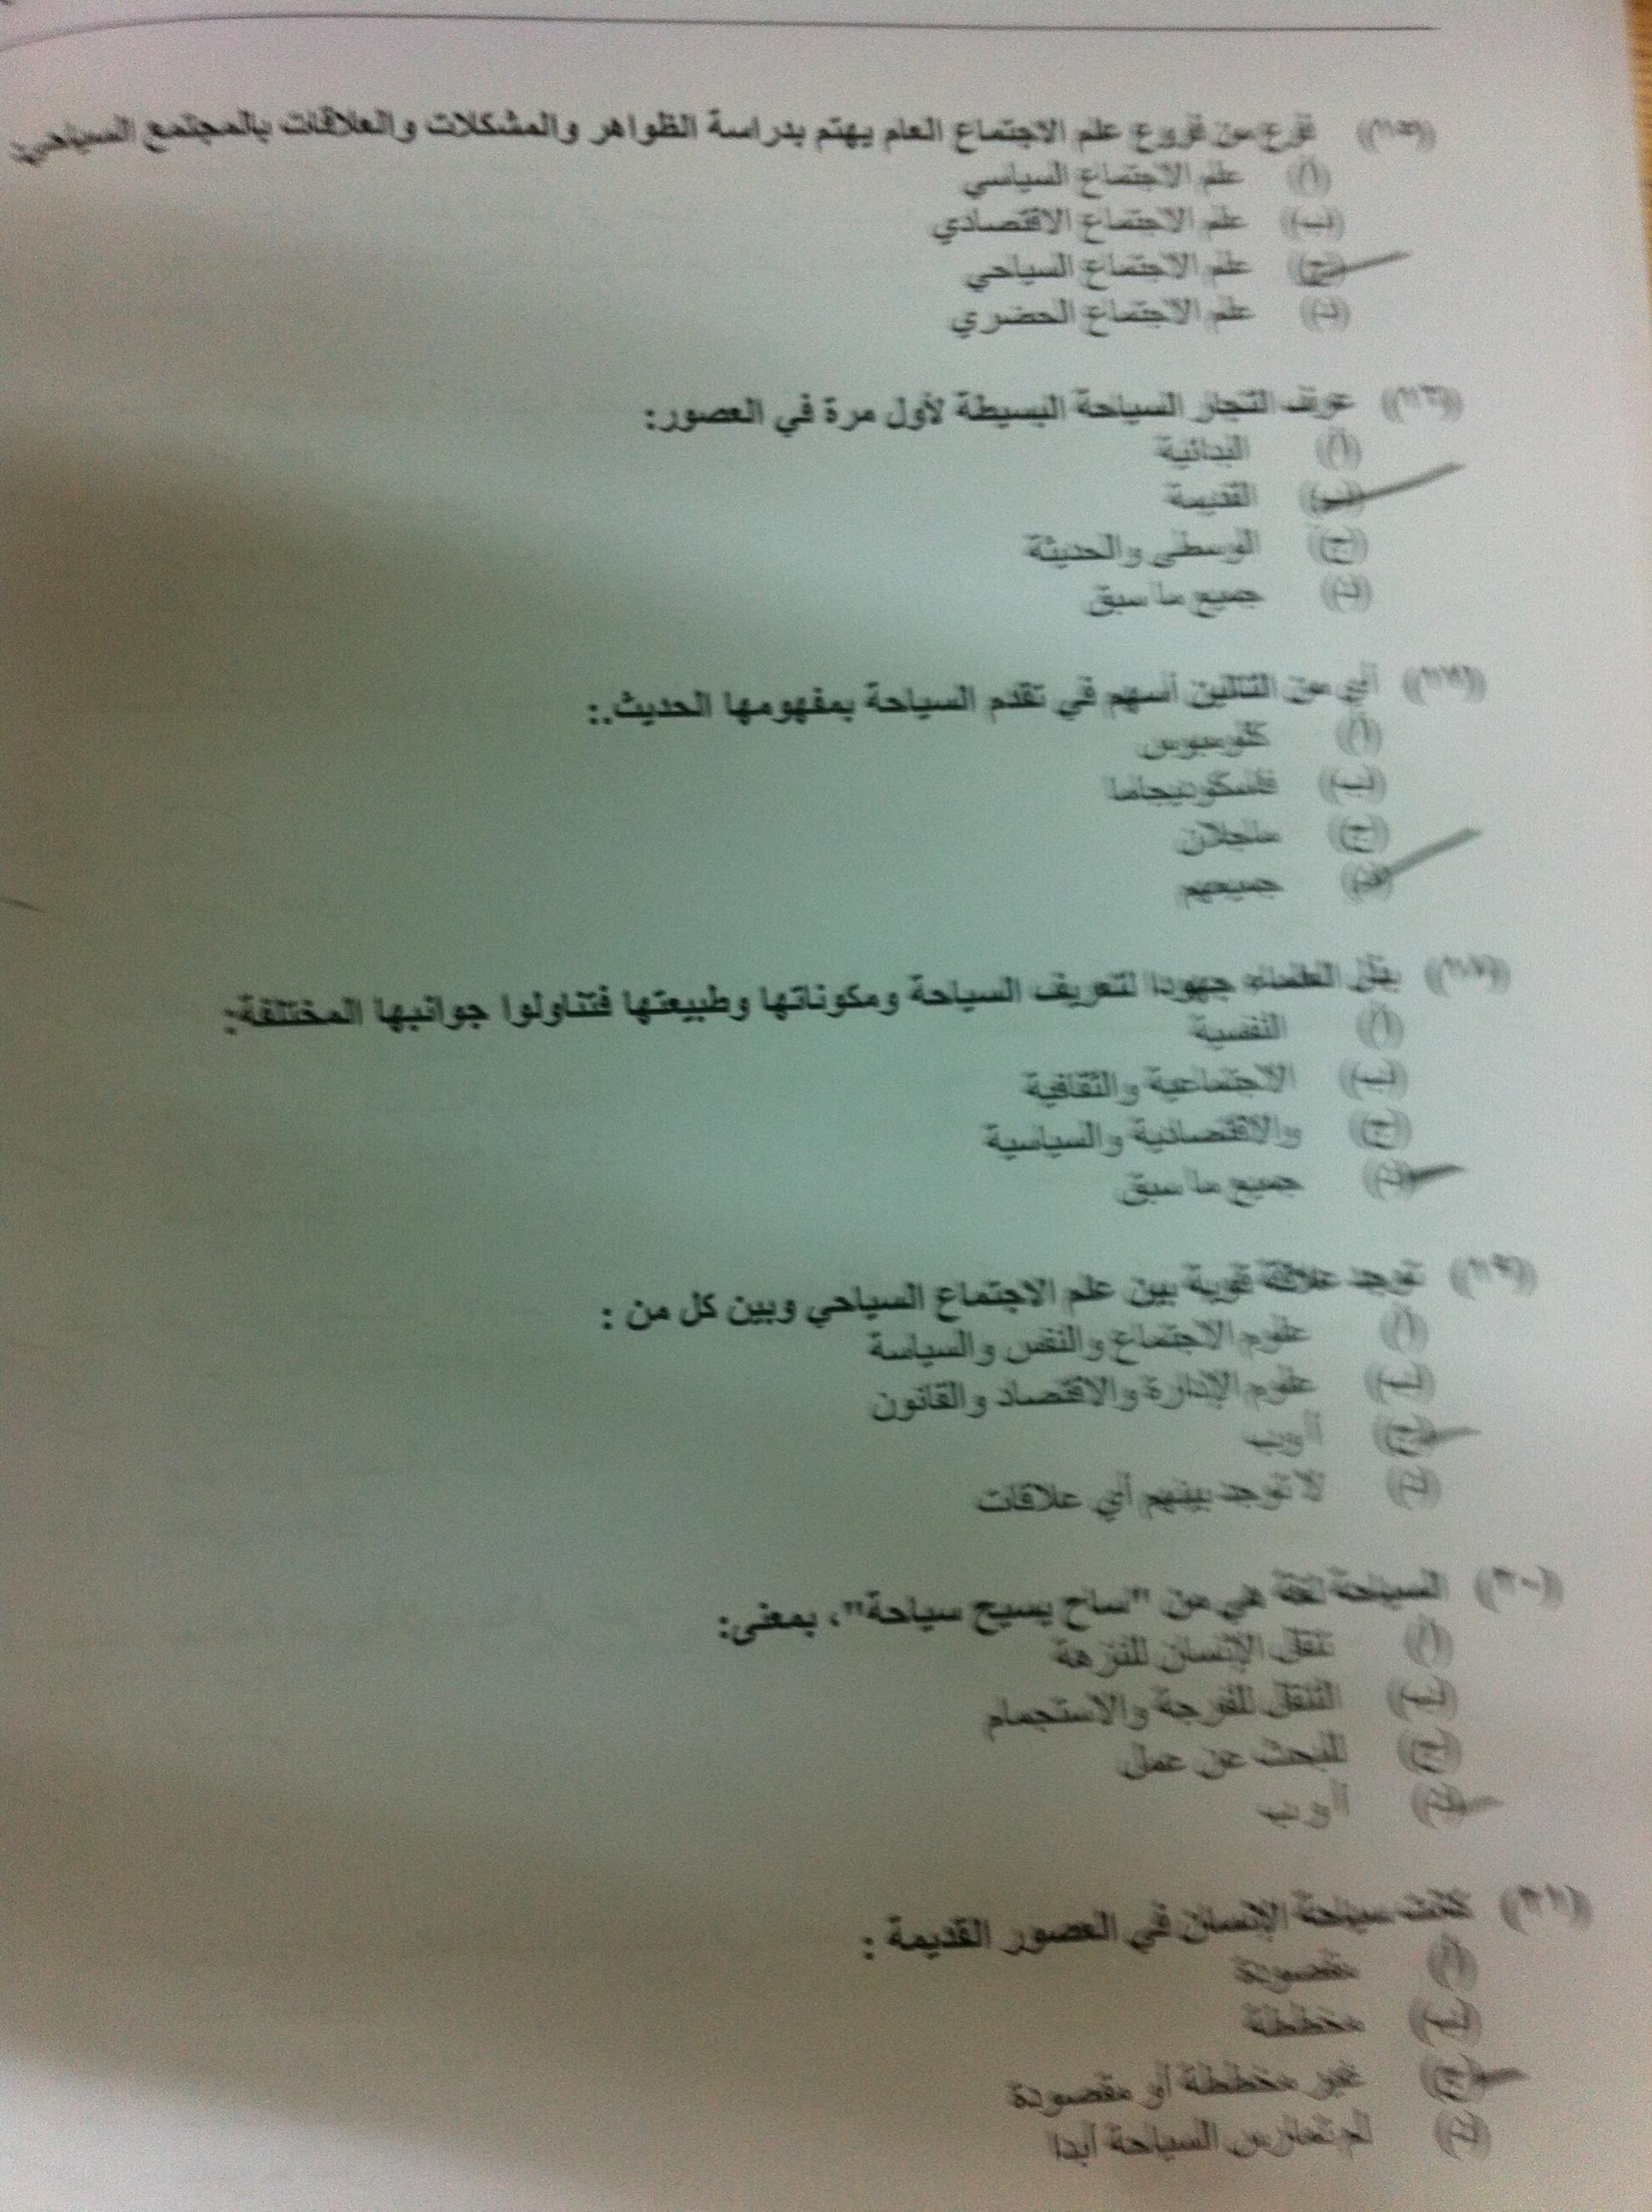 (١٥) فرع من فروع علم الاجتماع العام يهتم بدراسة الظواهر والمشكلات والعلاقات بالمجتمع السياحي:
(أ) علم الاجتماع السياسي
(ب) علم الاجتماع الاقتصادي
(ج) علم الاجتماع السياحي
(د) علم الاجتماع الحضري
(١٦) عرف التجار السياحة البسيطة لأول مرة في العصور:
(أ) البدائية
(ب) القديمة
(ج) الوسطى والحديثة
(د) جميع ما سبق
(١٧) أي من التالين أسهم في تقدم السياحة بمفهومها الحديث.:
(أ) كلومبوس
(ب) فاسكوديجاما
(ج) ماجلان
(د) جميعهم
(١٨) بذل العلماء جهودا لتعريف السياحة ومكوناتها وطبيعتها فتناولوا جوانبها المختلفة:
(أ) النفسية
(ب) الاجتماعية والثقافية
(ج) والاقتصادية والسياسية
(د) جميع ما سبق
(١٩) توجد علاقة قوية بين علم الاجتماع السياحي وبين كل من :
(أ) علوم الاجتماع والنفس والسياسة
(ب) علوم الإدارة والاقتصاد والقانون
(ج) أ وب
(د) لا توجد بينهم أي علاقات
(٢٠) السياحة لغة هي من "ساح يسيح سياحة"، بمعنى:
(أ) تنقل الإنسان للنزهة
(ب) التنقل للفرجة والاستجمام
(ج) البحث عن عمل
(د) أ وب
(٢١) كانت سياحة الإنسان في العصور القديمة :
(أ) مقصودة
(ب) مخططة
(ج) غير مخططة أو مقصودة
(د) لم تمارس السياحة أبدا